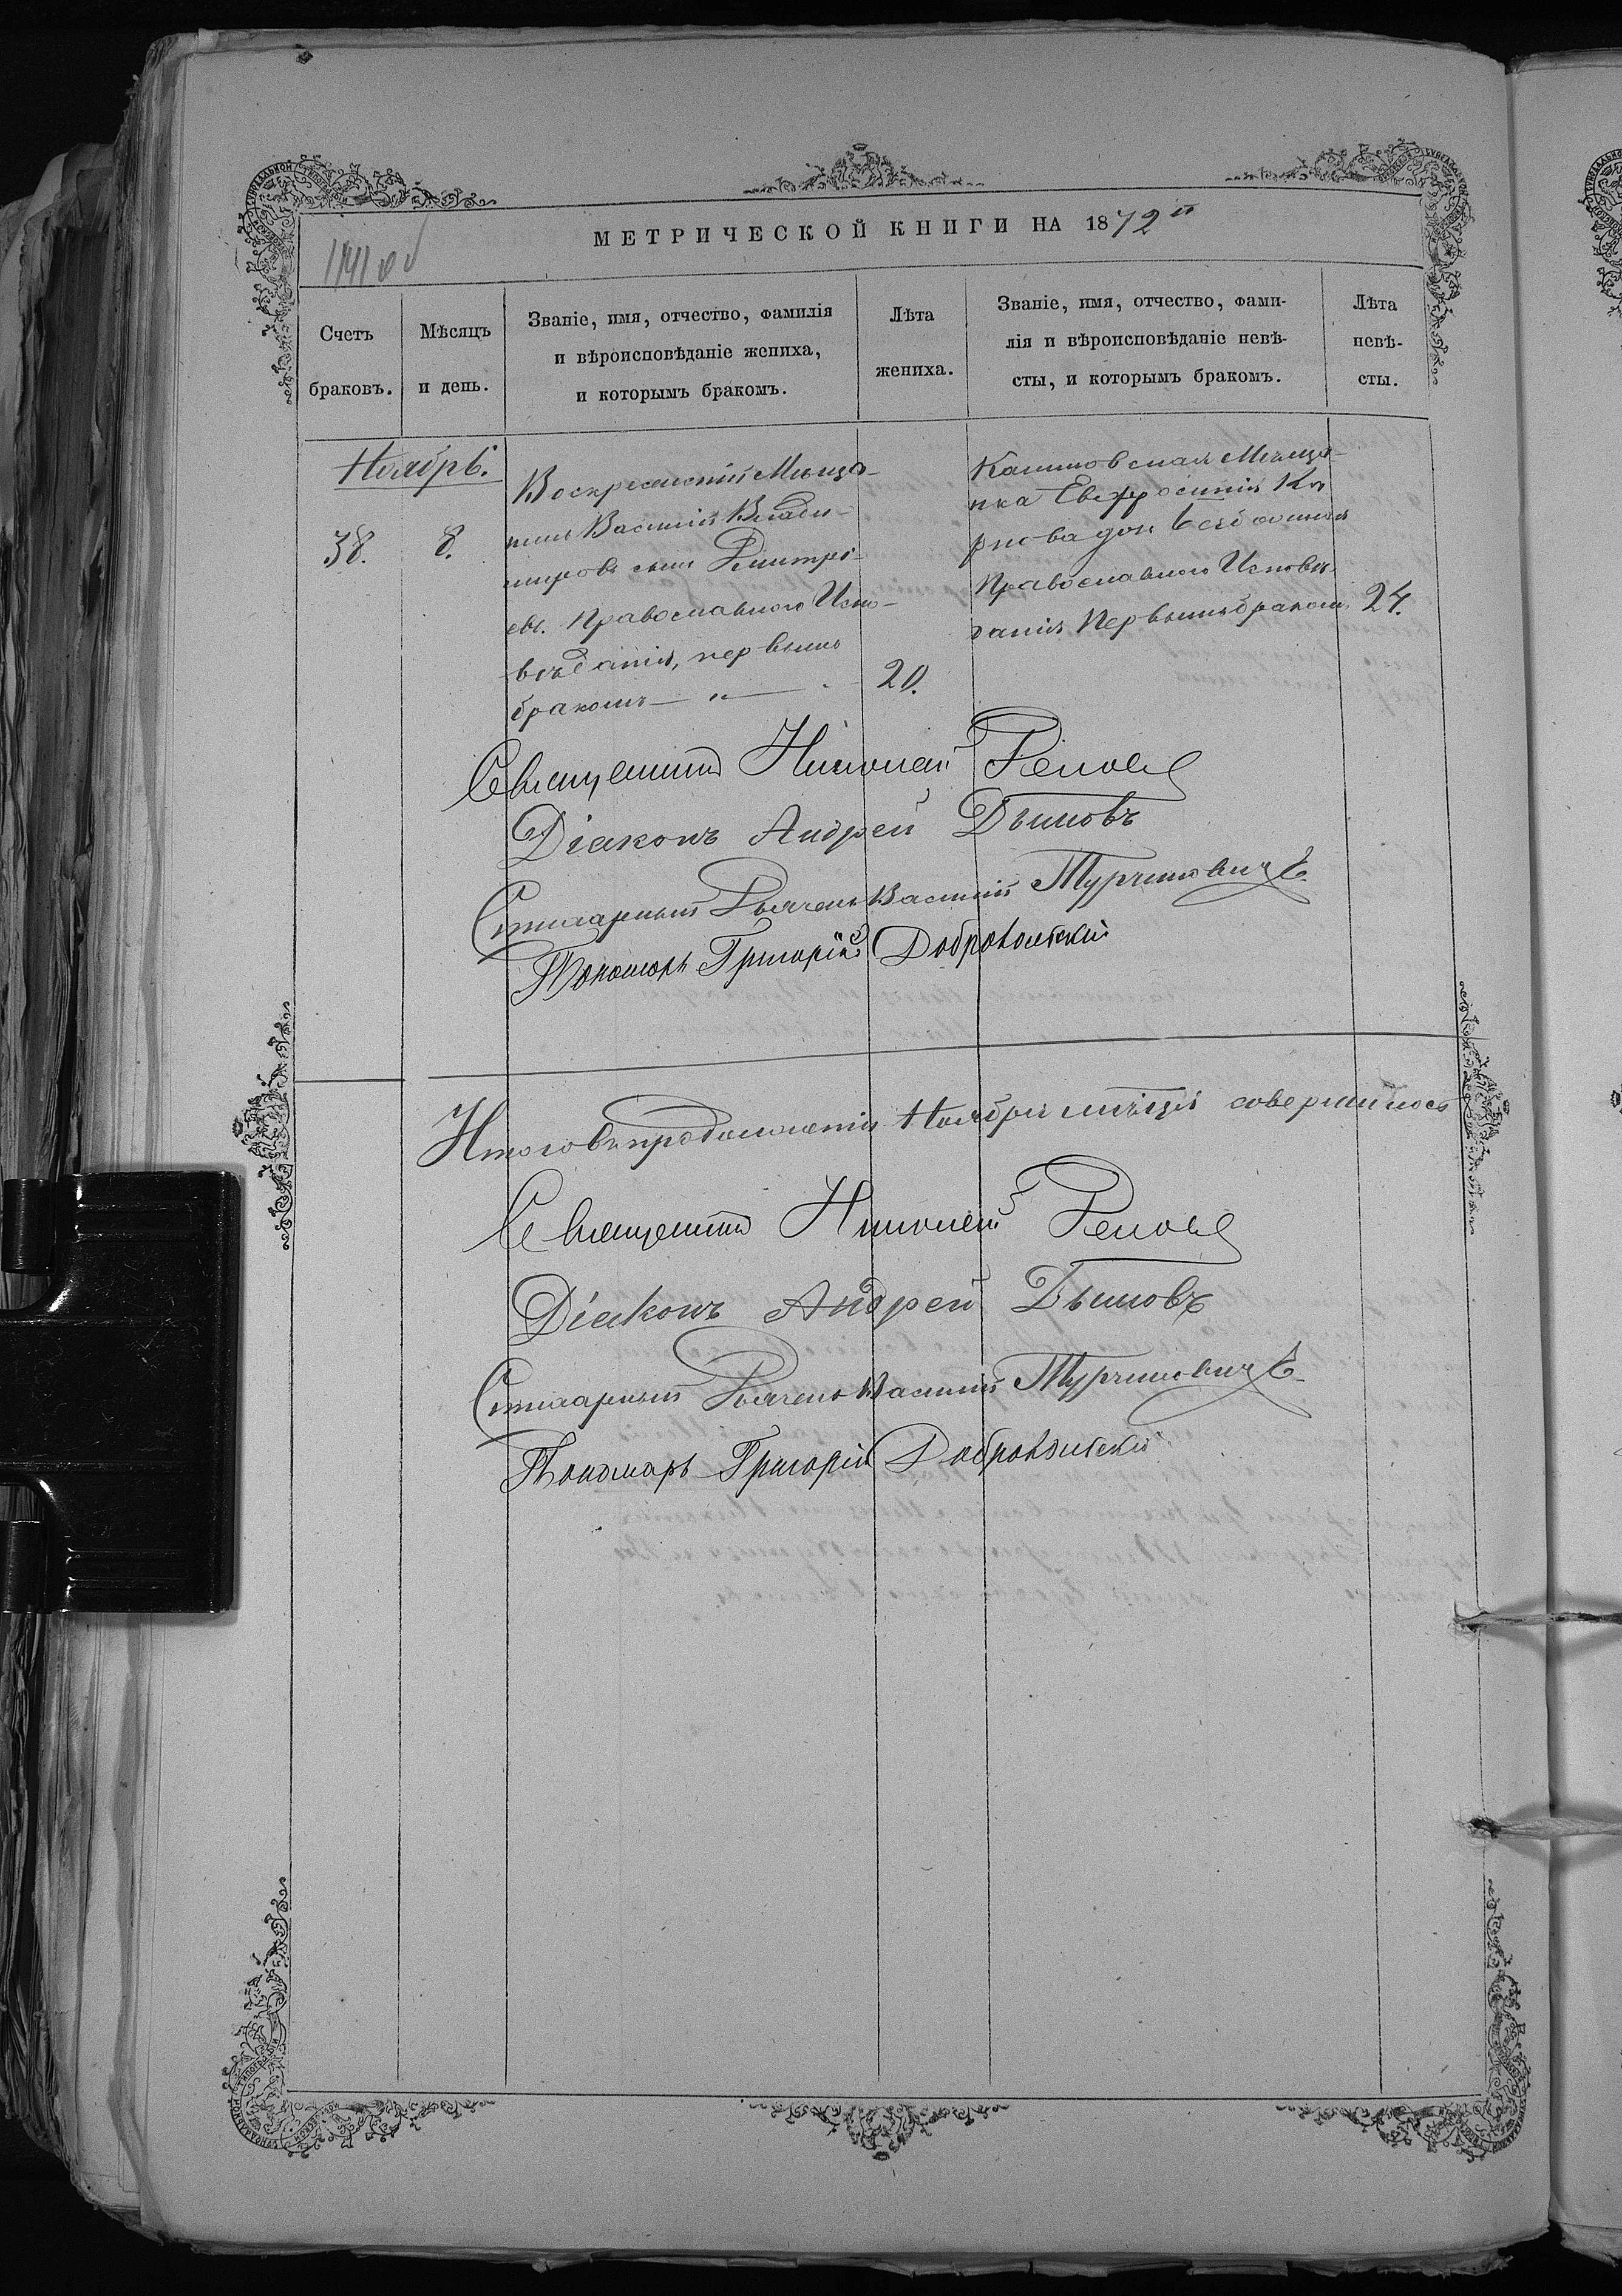 МЕТРИЧЕСКОЙ КНИГИ НА 1872й
Счетъ браковъ.
Мѣсяцъ и день.
Званіе, имя, отчество, фамилія
и вѣроисповѣданіе жениха,
и которымъ бракомъ.
Лѣта жениха.
Званіе, имя, отчество, фами-
лія и вѣроисповѣданіе невѣ-
сты, и которымъ бракомъ.
Лѣта невѣ-
сты.
Ноябрь.
38.
8.
Воскресенскій Мѣща-
нинъ Василій Влади-
міровъ сынъ Дмитрі-
евъ. Православнаго Испо-
вѣданія, первымъ
бракомъ — „ —
20.
Мѣща-
нка Евфросинія
Православнаго Исповѣ-
данія Первымъ бракомъ
24.
Священникъ Николай
Діаконъ Андрей Дымовъ
Стихарный Дьячекъ Василій Турчиновичъ
Пономарь Григорій Добровольскій
Итого въ продолженіи Ноября мѣсяца совершилось
Священникъ Николай
Діаконъ Андрей Дымовъ
Стихарный Дьячекъ Василій Турчиновичъ
Пономарь Григорій Добровольскій